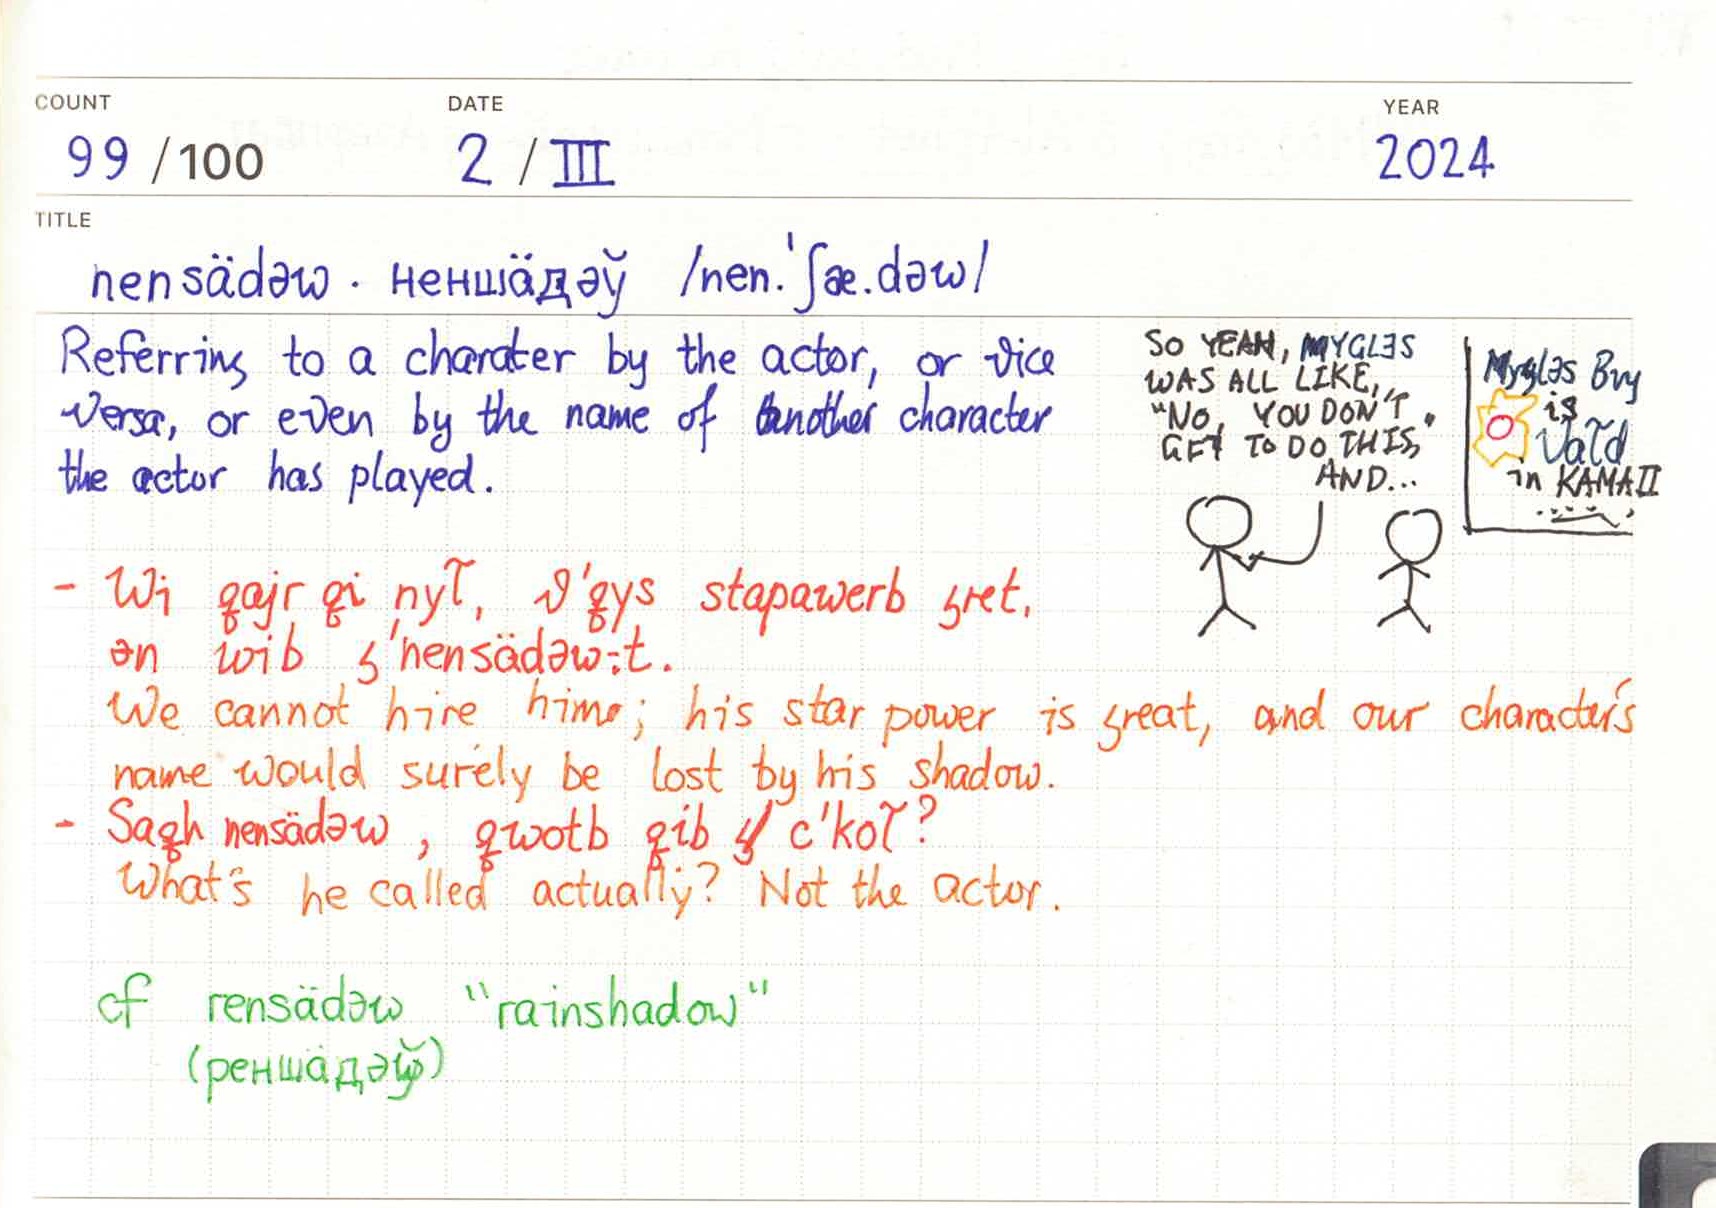 COUNT
DATE
YEAR
99 /100
2 / III
2024
TITLE
nensädəw · неншäдəў /nen.ˈʃæ.dəw/
Referring to a charater by the actor, or vice
versa, or even by the name of another character
the actor has played.
SO YEAH, MYGLƎS
WAS ALL LIKE,
"NO, YOU DON'T
GET TO DO THIS,"
AND...
Mygləs Bvy
is
in KAMA II
- Wi qajr qi nyt̃, v'qys stapawerb gret,
ən wib g'nensädəw:t.
We cannot hire him; his star power is great, and our character's
name would surely be lost by his shadow.
- Saqh nensädəw, qwotb qib c'kol̃?
What's he called actually? Not the actor.
cf rensädəw "rainshadow"
(реншäдəў)